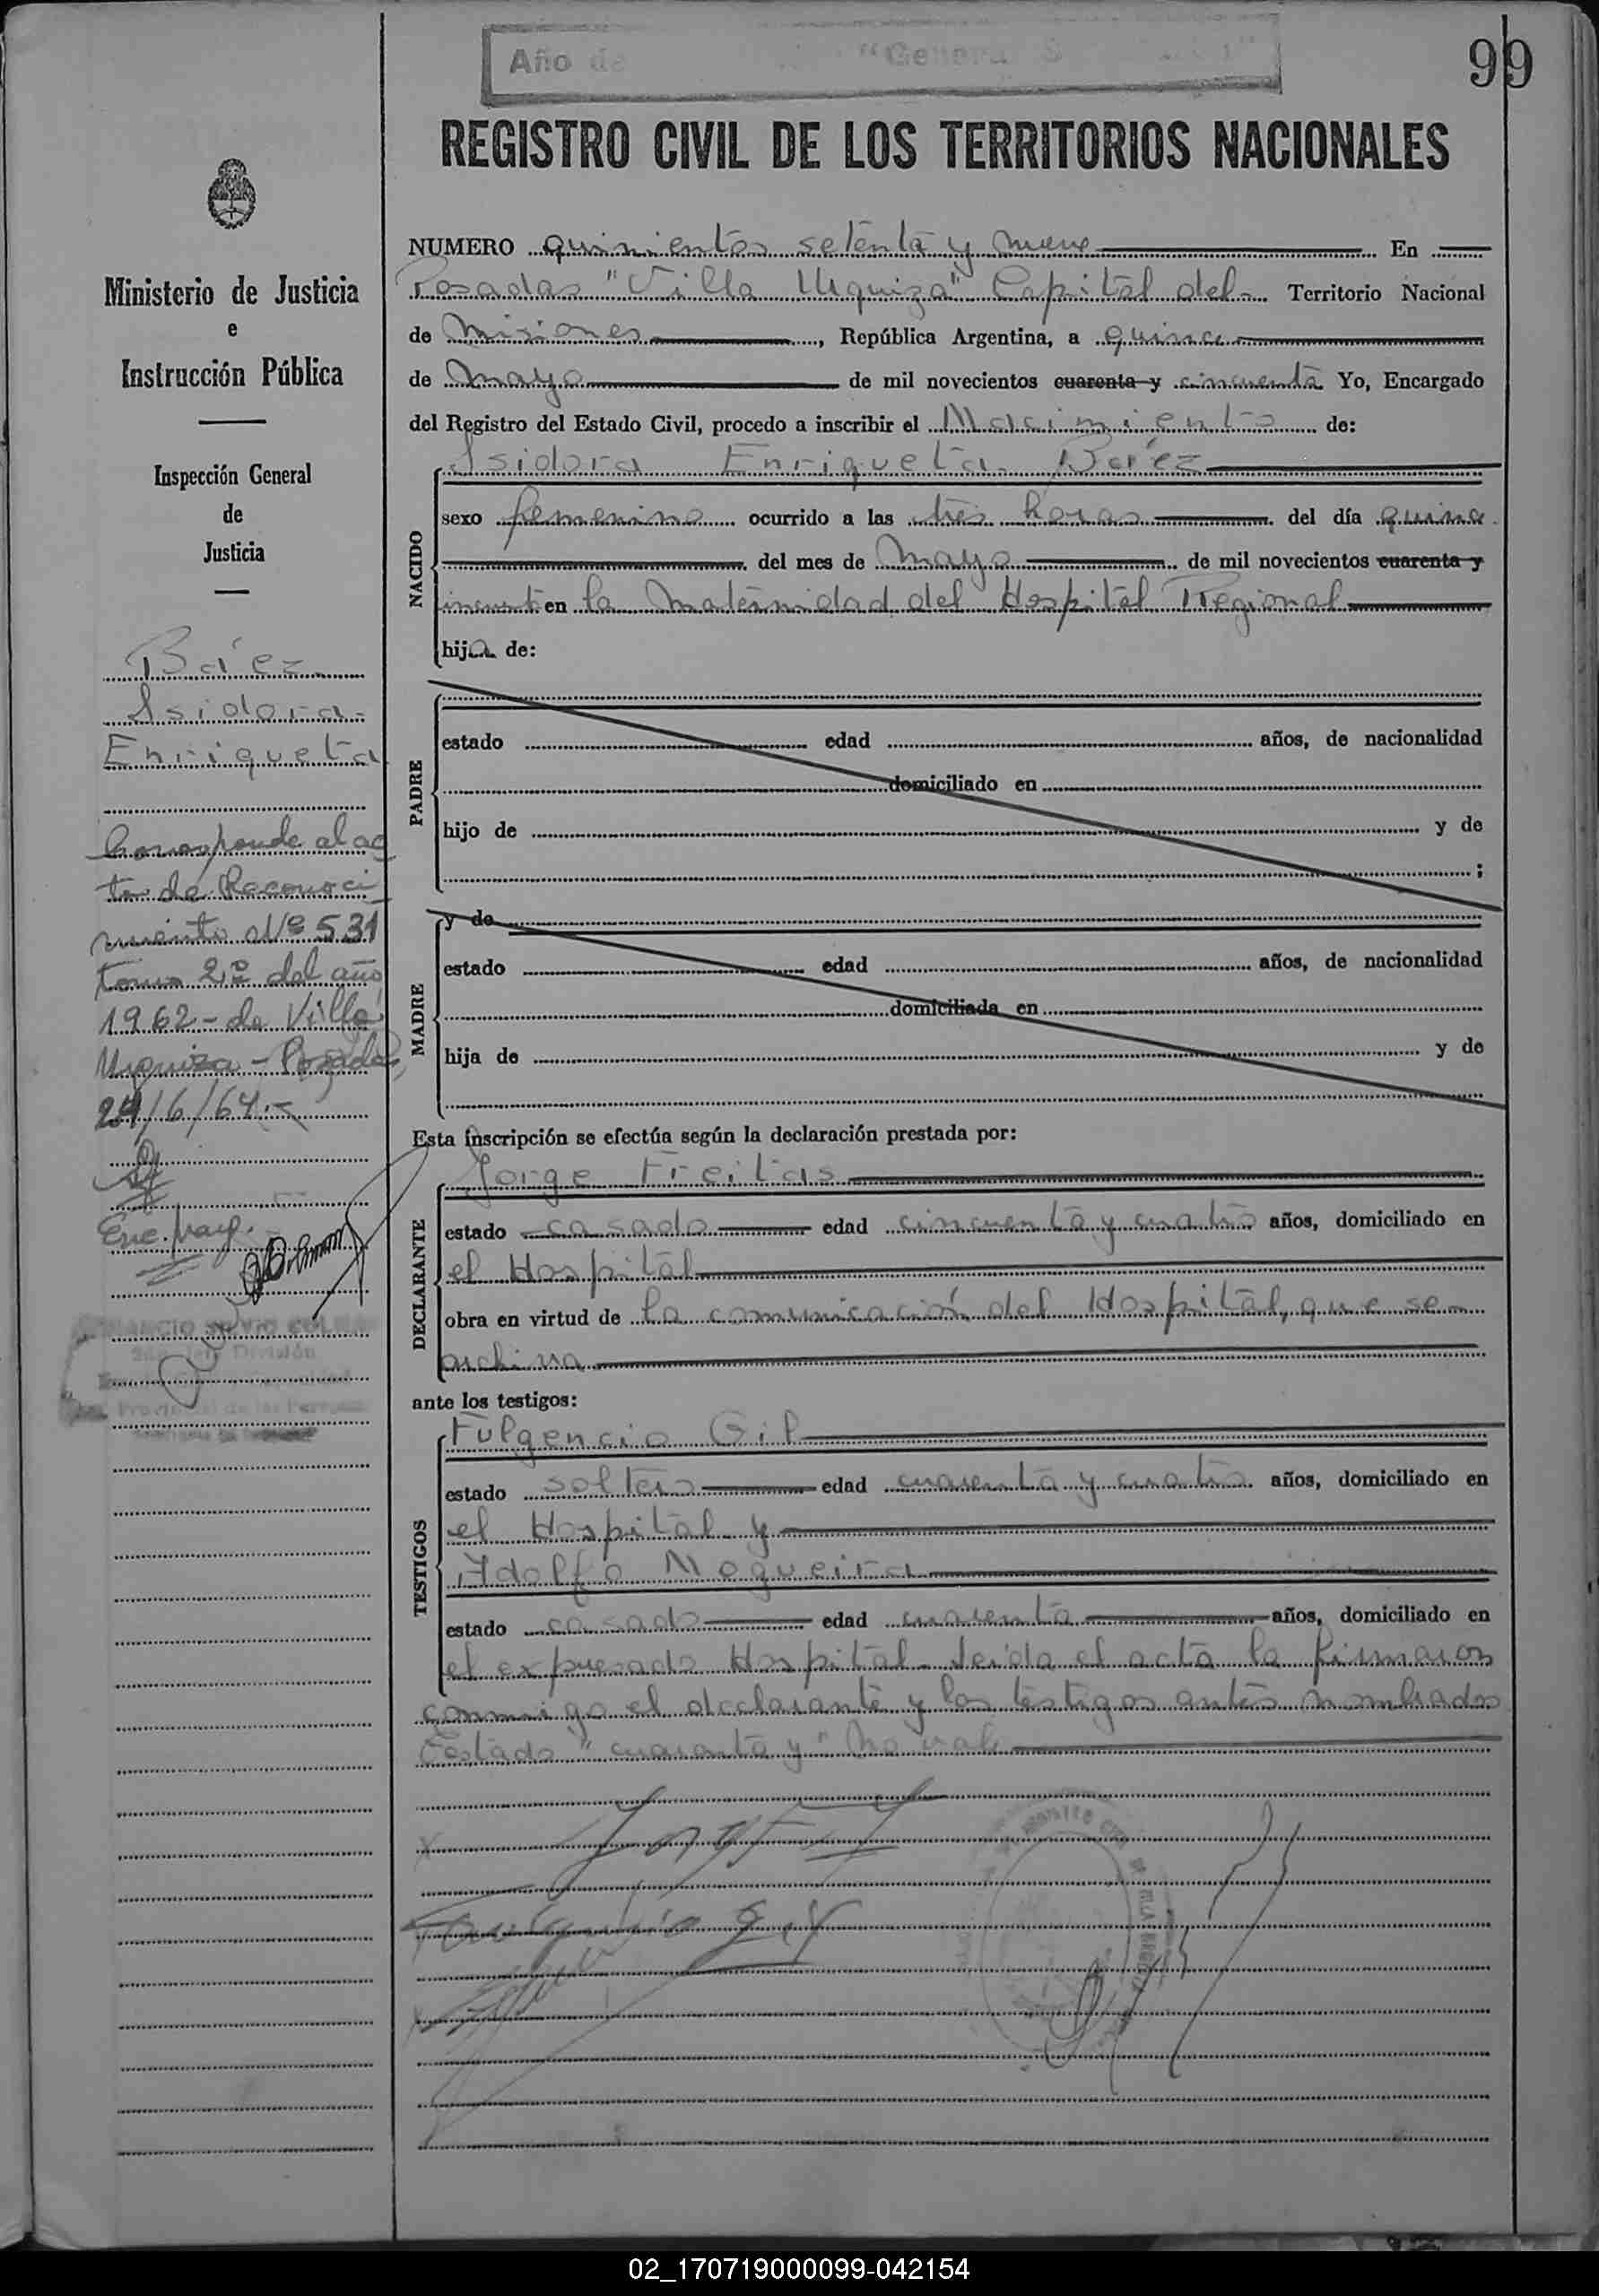 Año de "General S
99
REGISTRO CIVIL DE LOS TERRITORIOS NACIONALES
Ministerio de Justicia
e
Instrucción Pública
Inspección General
de
Justicia
Báez
Isidora
Enriqueta
Corresponde al ac
to de Reconoci
miento Nº 531
tomo 2º del año
1962 - de Villa
Urquiza - Posadas,
24/6/64.-
NUMERO quinientos setenta y nueve En
Posadas "Villa Urquiza" Capital del- Territorio Nacional
de Misiones, República Argentina, a quince
de mayo de mil novecientos cuarenta y cincuenta Yo, Encargado
del Registro del Estado Civil, procedo a inscribir el Nacimiento de:
Isidora Enriqueta Báez
NACIDO
sexo femenino ocurrido a las tres horas del día quince
del mes de mayo de mil novecientos cuarenta y
cincuenta en la Maternidad del Hospital Regional
hija de:
PADRE
estado edad años, de nacionalidad
domiciliado en
hijo de y de
;
MADRE
y de
estado edad años, de nacionalidad
domiciliada en
hija de y de
Esta inscripción se efectúa según la declaración prestada por:
DECLARANTE
Jorge Freitas
estado casado edad cincuenta y cuatro años, domiciliado en
el Hospital
obra en virtud de la comunicación del Hospital, que se
archiva
ante los testigos:
TESTIGOS
Fulgencio Gil
estado soltero edad cuarenta y cuatro años, domiciliado en
el Hospital y
Adolfo Nogueira
estado casado edad cuarenta años, domiciliado en
el expresado Hospital. Leída el acta la firmaron
conmigo el declarante y los testigos antes nombrados
Testado "cuarenta y" No vale
02_170719000099-042154